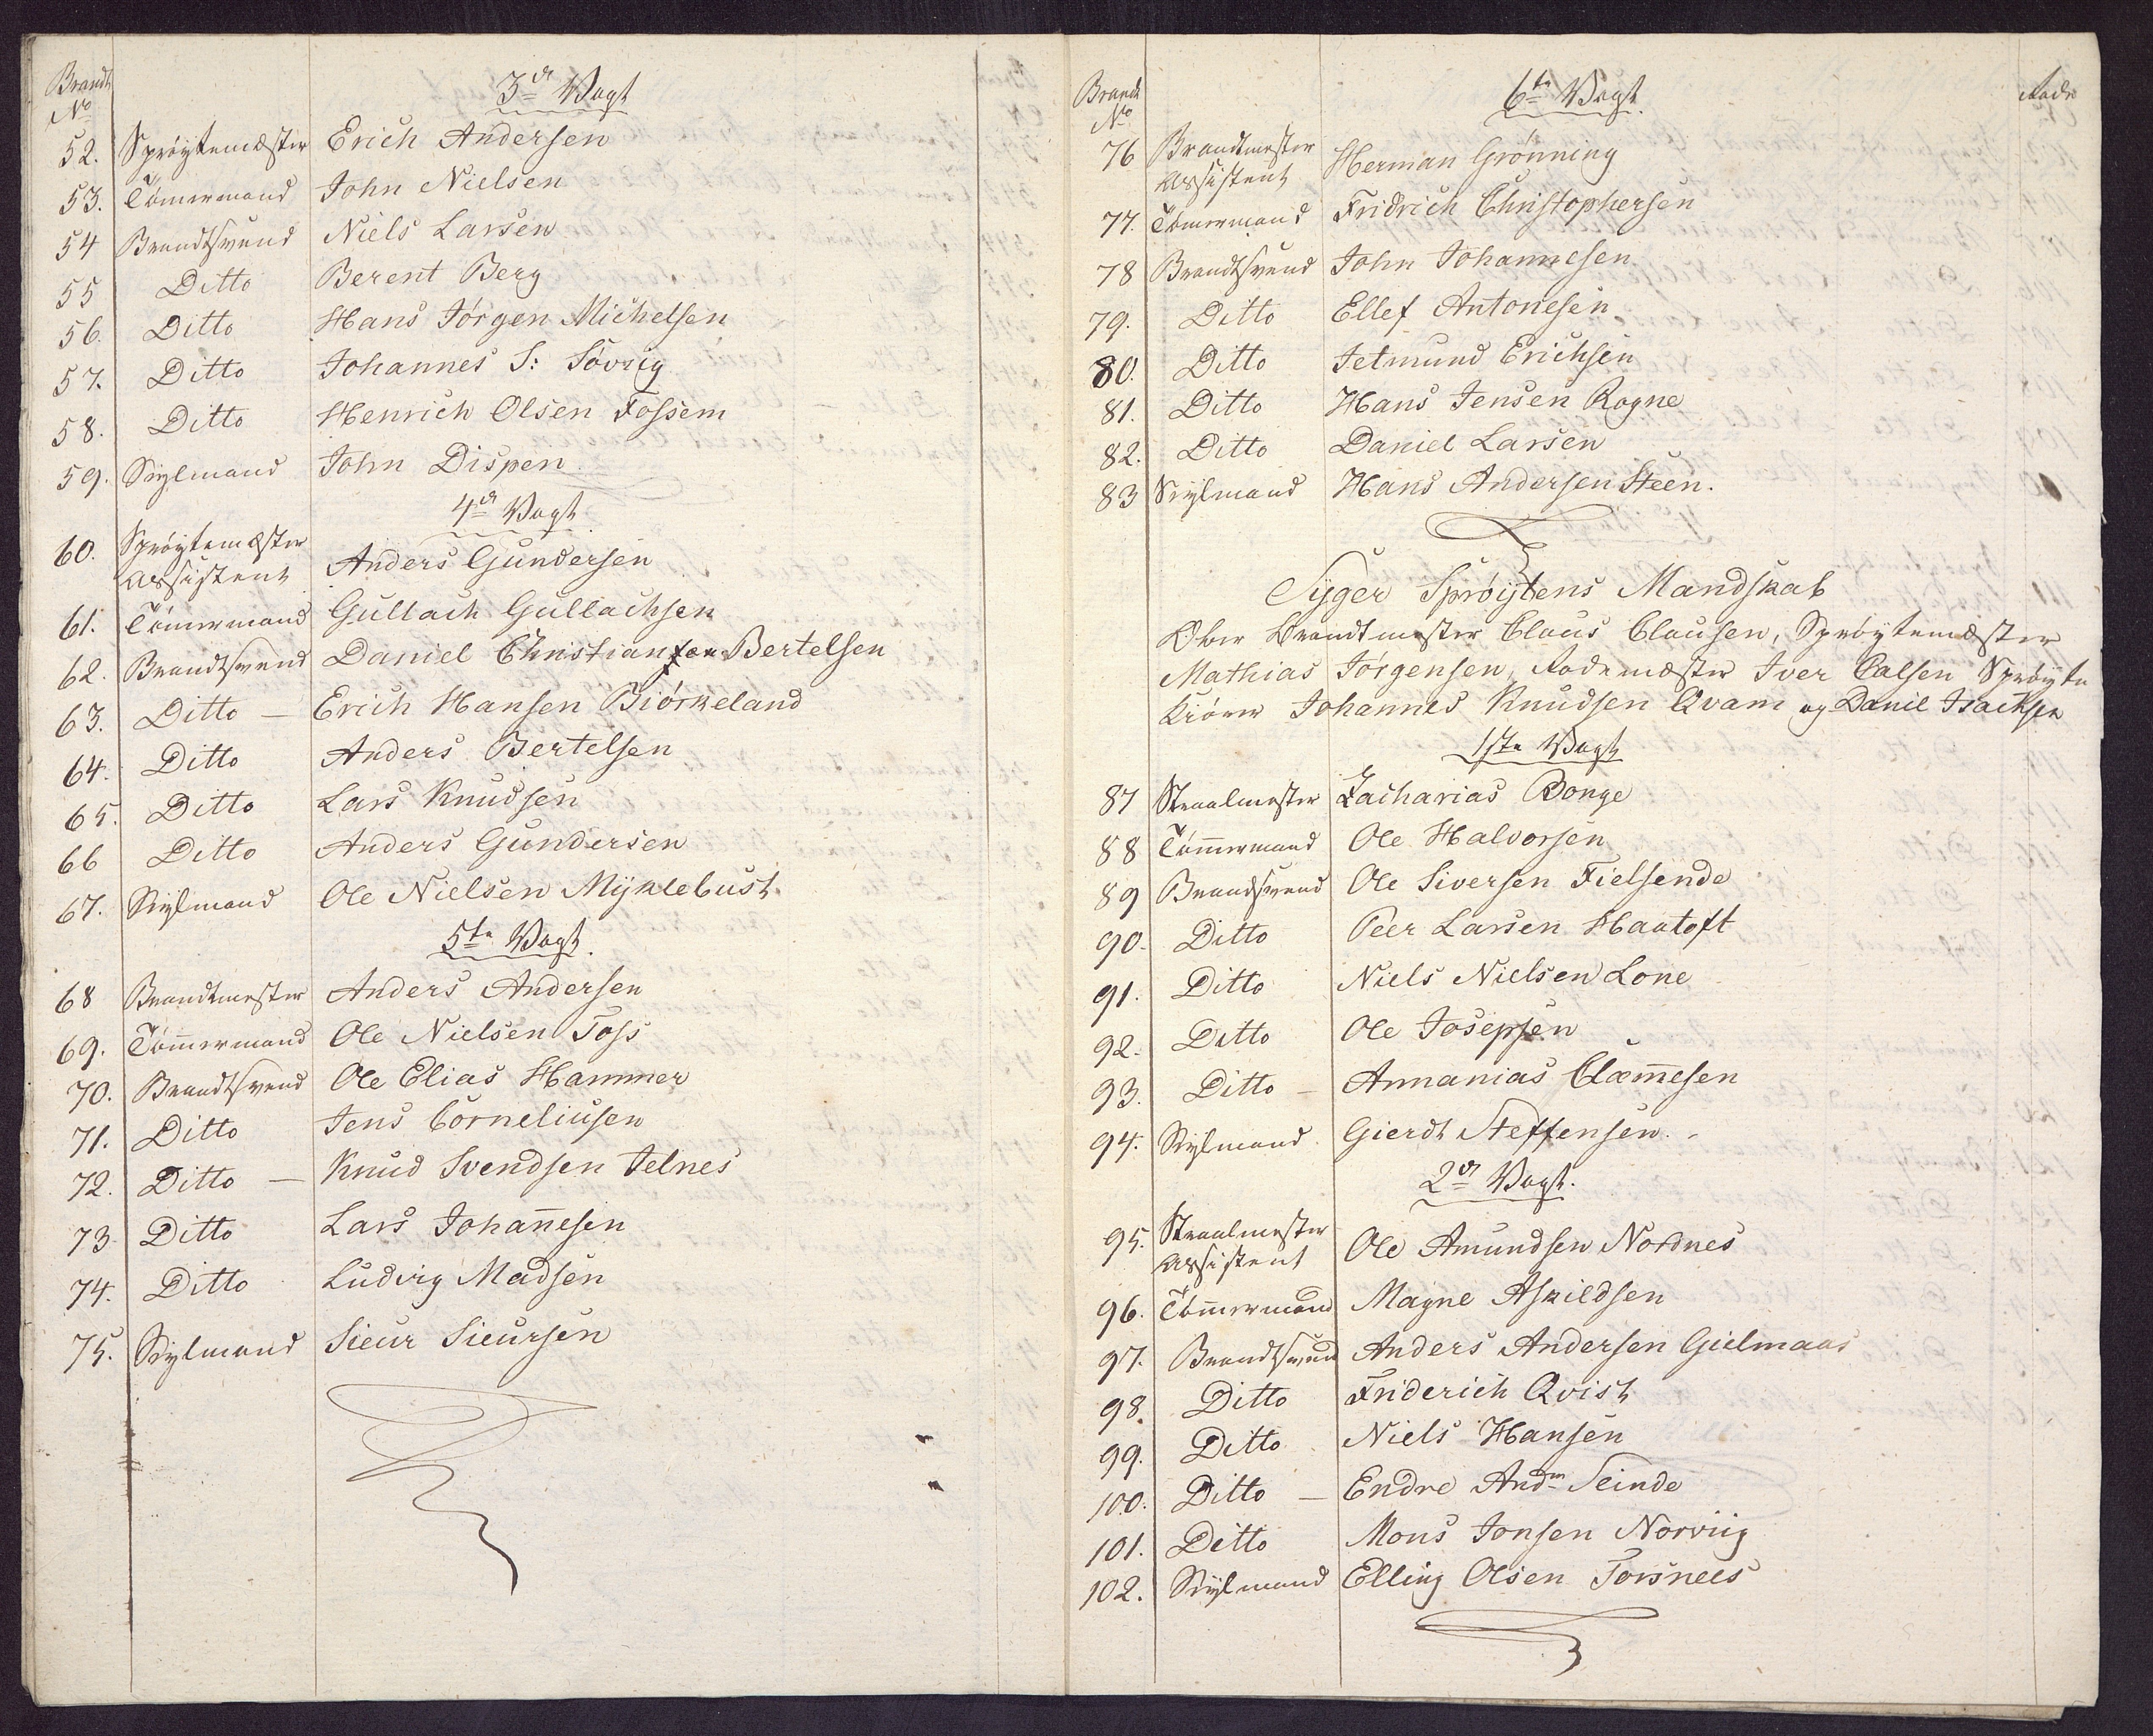 Brandt
No
3de Vagt
52. Sprøytemester Erich Andersen
53. Tømermand John Nielsen
54 Brandtsvend Niels Larsen
55 Ditto Berent Berg
56. Ditto Hans Jørgen Michelsen
57. Ditto Johannes S: Søvzig
58. Ditto Henrich Olsen Fossem
59. Siylmand John Dispen
4de Vagt
60. Sprøytemester
Assistent Anders Gundersen
61. Tømermand Gullach Gullachsen
62. Brandtsvend Daniel Christian Bertelsen
63. Ditto — Erich Hansen Biørkeland
64. Ditto Anders Bertelsen
65. Ditto Lars Knudsen
66 Ditto Anders Gundersen
67. Siylmand Ole Nielsen Myklebust.
5te Vagt.
68 Brandtmester Anders Andersen
69. Tømmermand Ole Nielsen Foss
70. Brandtsvend Ole Elias Hammer
71. Ditto Jens Corneliusen
72. Ditto — Knud Svendsen Jelnes
73 Ditto Lars Johannesen
74. Ditto Ludvig Madsen
75. Siylmand Sieur Sieursen
Brandt
No
6te Vagt.
Rode
76 Brandtmester
Assistent Herman Grønning
77. Tømermand Fridrich Christophersen
78 Brandtsvend John Johannesen
79. Ditto Ellef Antonesen
80. Ditto Jetmund Erichsen
81. Ditto Hans Jensen Rogne
82. Ditto Daniel Larsen
83 Siylmand Hans Andersen Steen.
Syger Sprøytens Mandskab
Ober Brandtmester Claus Clausen, Sprøytemester
Mathias Jørgensen, Rodemester Iver Calsen Sprøyte
Kiører Johannes Knudsen Qvam og Danil Isachsen
1ste Vagt
87 Straalmester Zacharias Bonge
88 Tømmermand Ole Halvorsen
89 Brandsvend Ole Siversen Fielsende
90. Ditto Peer Larsen Hantoft
91. Ditto Niels Nielsen Lone
92. Ditto Ole Josepsen
93. Ditto — Annanias Clæmmesen
94. Siylmand Gierdt Steffensen.
2de Vagt.
95. Straalmester
Assistent Ole Amundsen Nordnes
96. Tømmermand Magne Askildsen
97. Brandtsvend Anders Andersen Gielmaas
98. Ditto Friderich Qvist
99. Ditto Niels Hansen
100. Ditto — Endre Andrn Seinde
101. Ditto Mons Jonsen Norviig
102. Siylmand Elling Olsen Forsnees